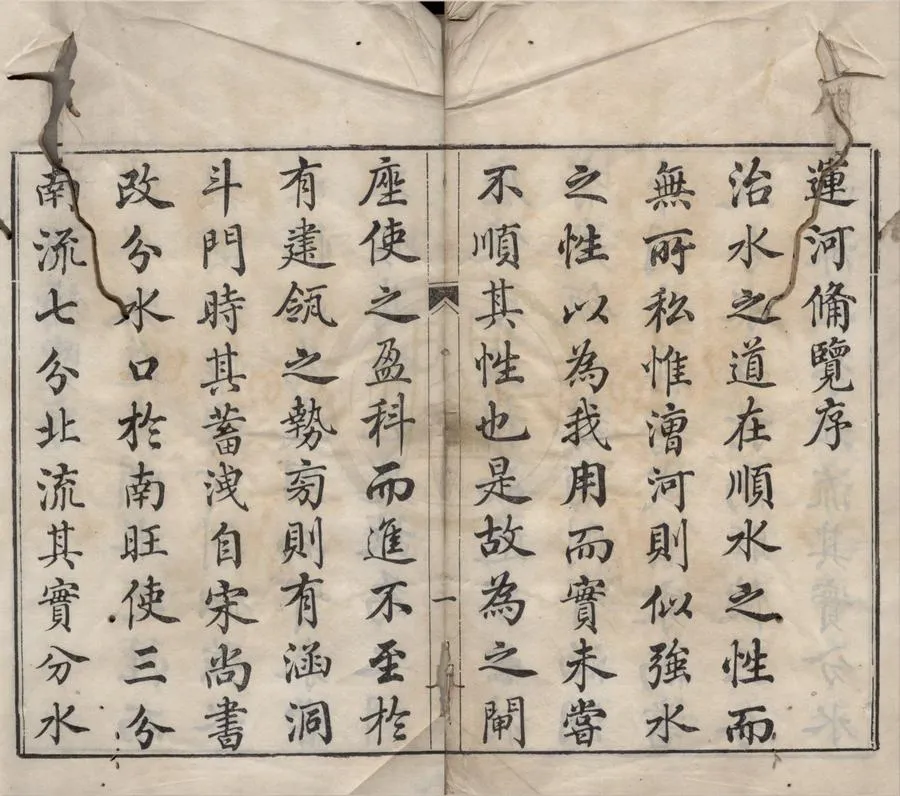 運河備覽序
治水之道在順水之性而
無所私惟漕河則似強水
之性以為我用而實未嘗
不順其性也是故為之閘
一
座使之盈科而進不至於
有建瓴之勢旁則有涵洞
斗門時其蓄洩自宋尚書
改分水口於南旺使三分
南流七分北流其實分水